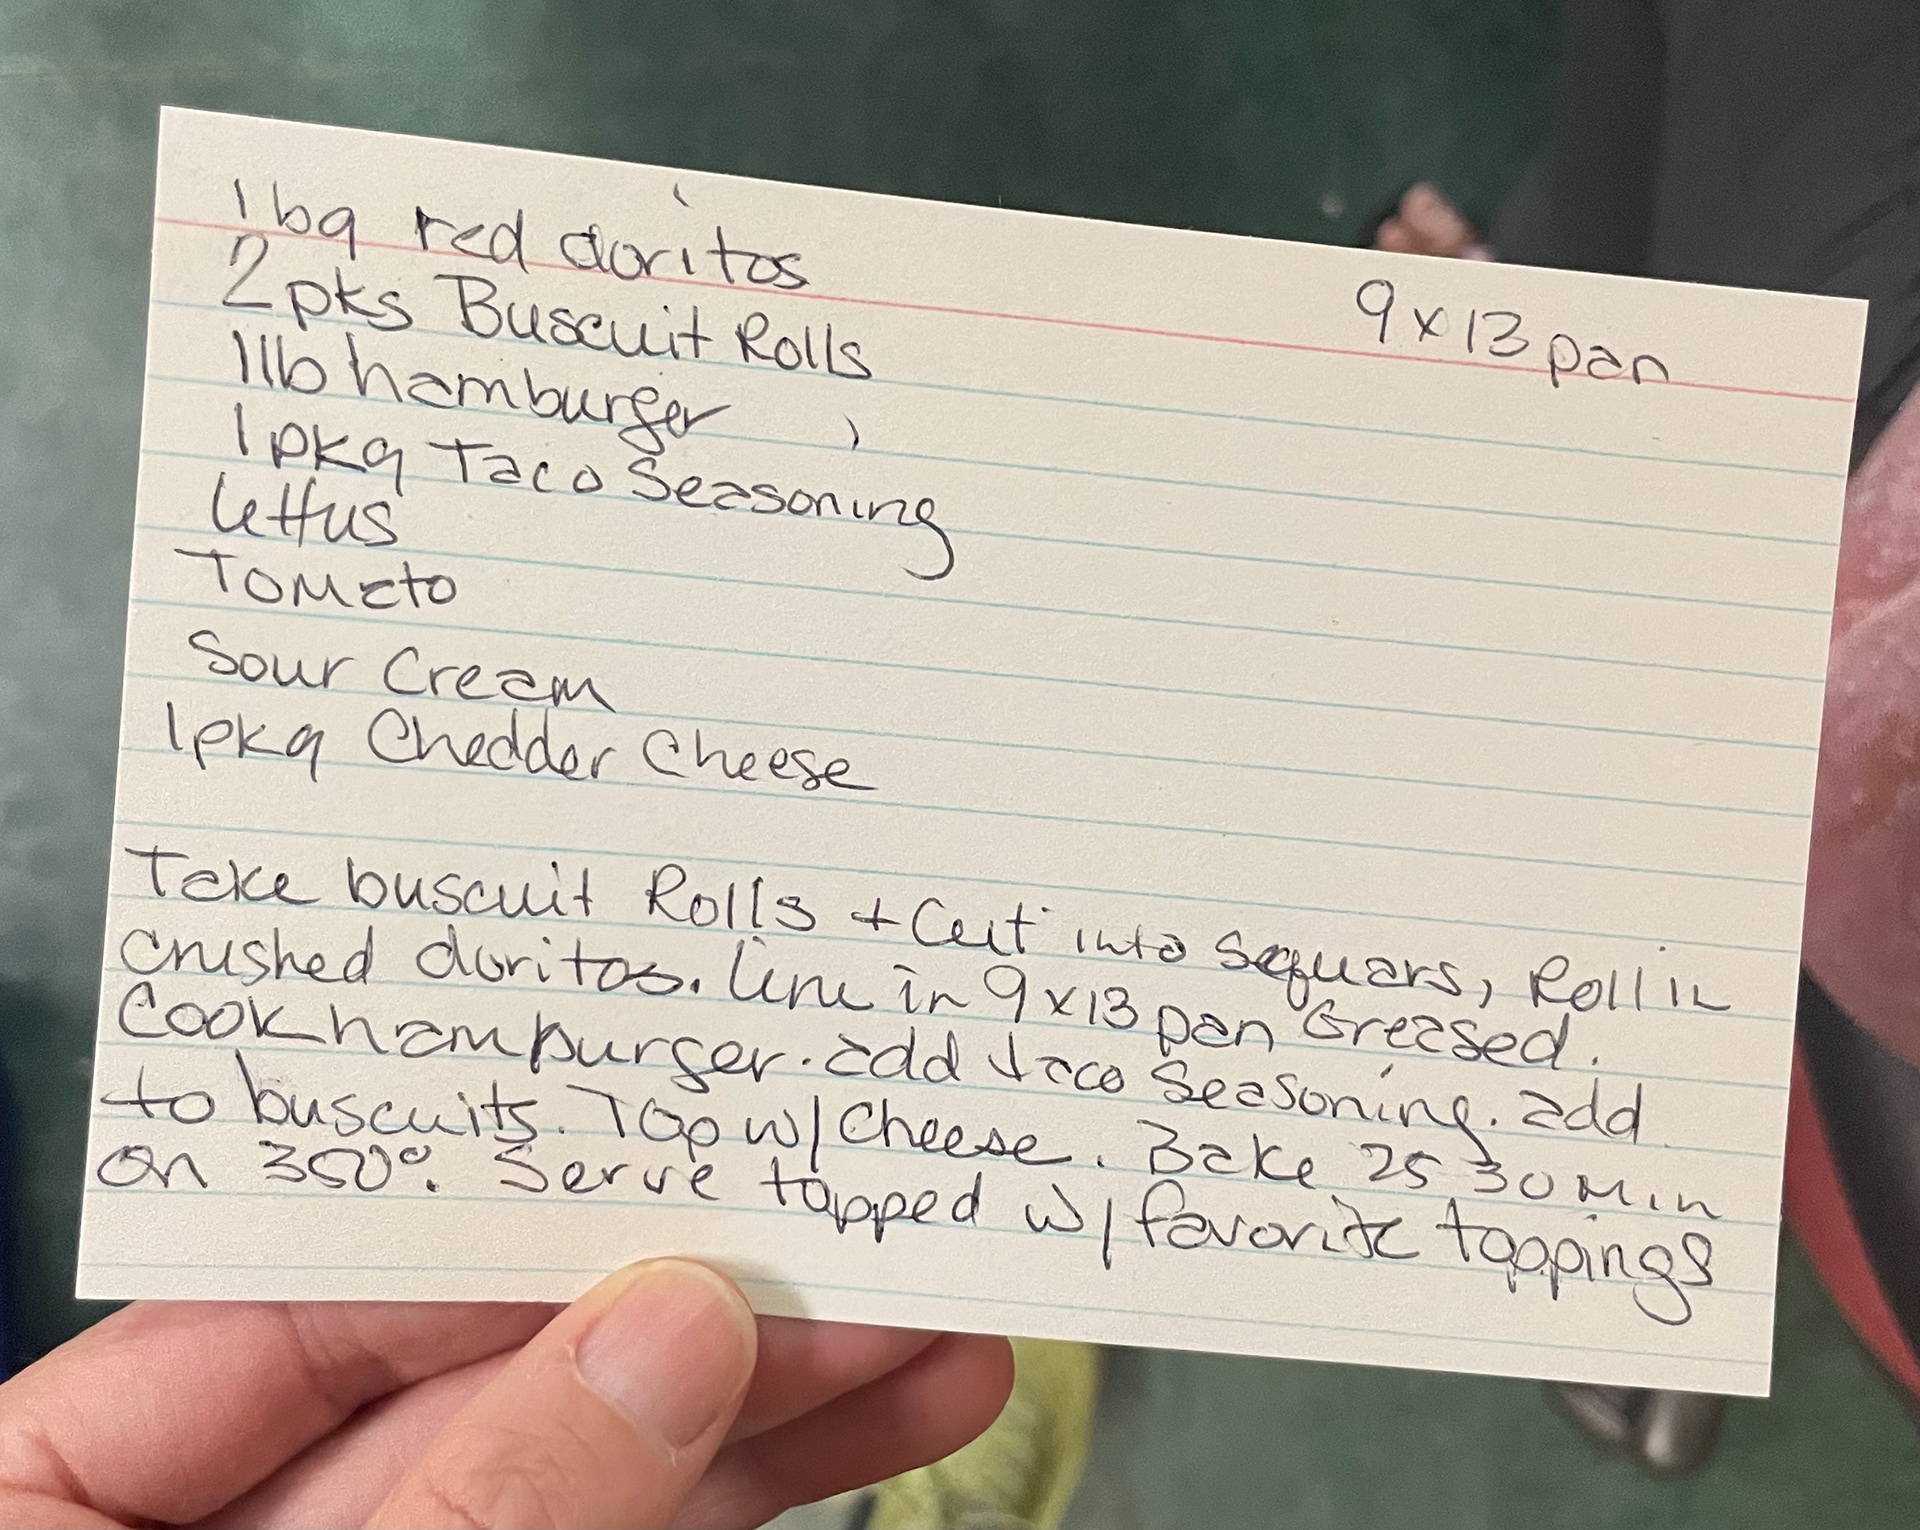 1 bg red doritos
9 x 13 pan
2 pks Buscuit Rolls
1 lb hamburger
1 pkg Taco Seasoning
lettus
Tomato
Sour Cream
1 pkg Chedder Cheese
Take buscuit Rolls + Cut into Sequars, Roll in
crushed doritos. line in 9 x 13 pan Greased.
Cook hamburger. add taco Seasoning. add
to buscuits. Top w/ Cheese. Bake 25 30 Min
on 350°. Serve topped w/ favorite toppings